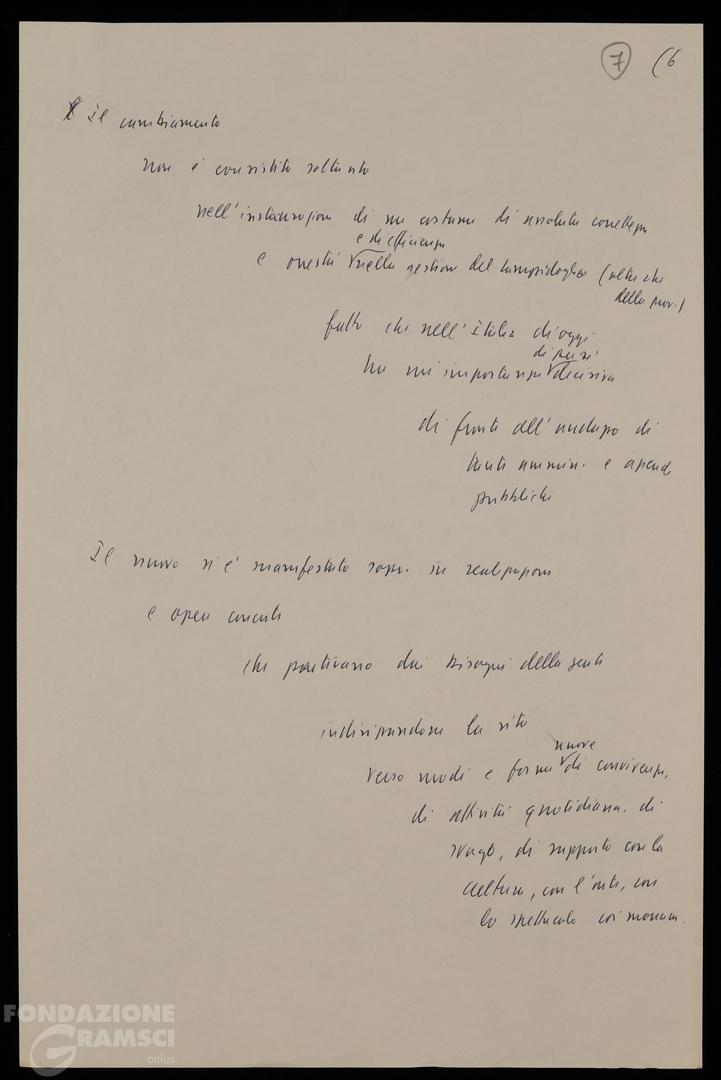 7 (6
Il cambiamento
non è consistito soltanto
nell'instaurazione di un costume di assoluta correttezza
e di efficienza
e onestà nella gestione del Campidoglio (oltre che
della prov.)
fatto che nell'Italia d'oggi
di per sé
ha un'importanza decisiva
di fronte all'andazzo di
tante ammin. e aziende
pubbliche
Il nuovo si è manifestato sopr. in realizzazioni
e opere concrete
che partivano dai bisogni della gente
indirizzandone la vita
nuove
verso modi e forme di convivenza,
di attività quotidiana. di
svago, di rapporto con la
cultura, con l'arte, con
lo spettacolo coi monum.
FONDAZIONE
GRAMSCI
onlus